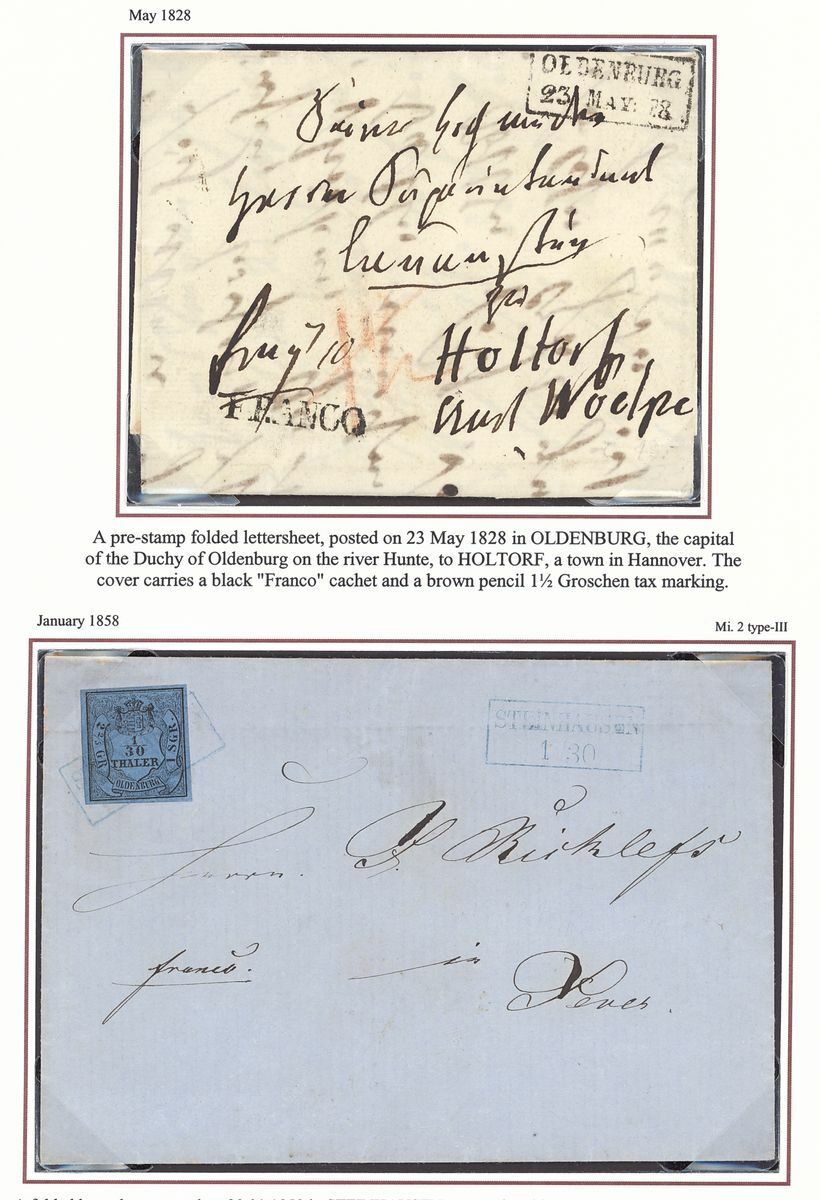 May 1828
OLDENBURG
23 MAY: 28
Herrn Superintendent
zu
Holtorf
FRANCO
Amt Woelpe
A pre-stamp folded lettersheet, posted on 23 May 1828 in OLDENBURG, the capital
of the Duchy of Oldenburg on the river Hunte, to HOLTORF, a town in Hannover. The
cover carries a black "Franco" cachet and a brown pencil 1½ Groschen tax marking.
January 1858
Mi. 2 type-III
1
30
THALER
OLDENBURG
1 SGR.
STEINHAUSEN
1 30
Herrn. Ricklefs
franco. in
Jever.